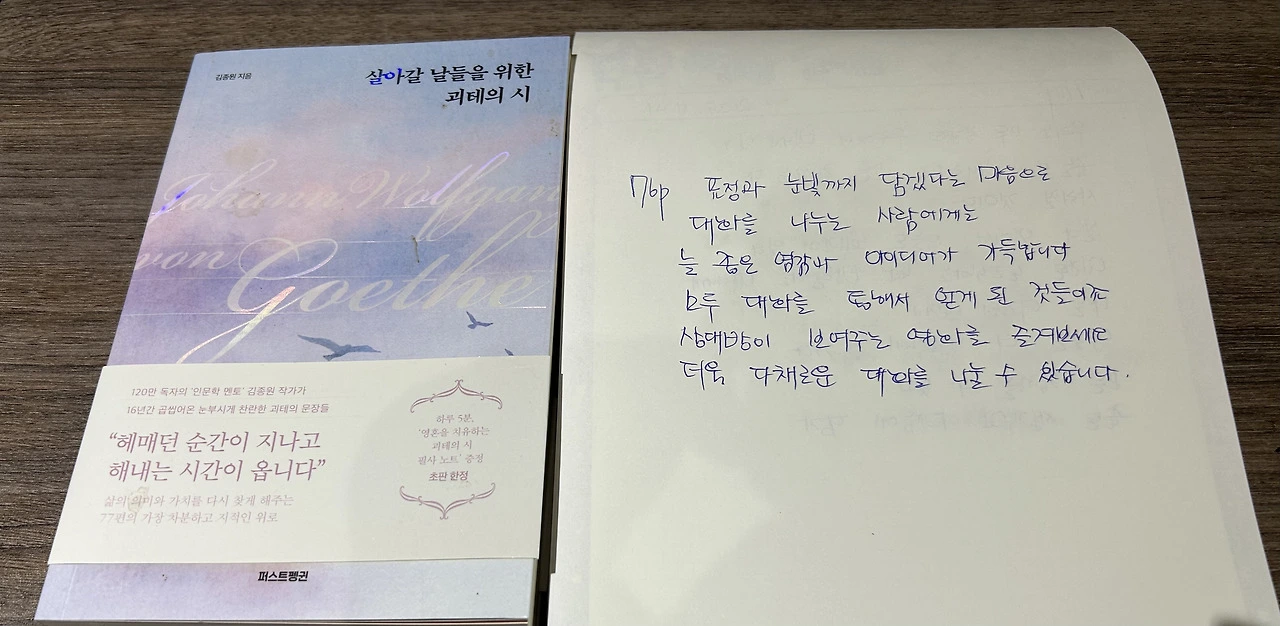 김종원 지음
살아갈 날들을 위한
괴테의 시
Johann Wolfgang
von
Goethe
120만 독자의 '인문학 멘토' 김종원 작가가
16년간 곱씹어온 눈부시게 찬란한 괴테의 문장들
“헤매던 순간이 지나고
해내는 시간이 옵니다”
삶의 의미와 가치를 다시 찾게 해주는
77편의 가장 차분하고 지적인 위로
하루 5분,
'영혼을 치유하는
괴테의 시
필사 노트' 증정
초판 한정
퍼스트펭귄
76p 표정과 눈빛까지 담겠다는 마음으로
대화를 나누는 사람에게는
늘 좋은 영감과 아이디어가 가득합니다
모두 대화를 통해서 얻게 된 것들이죠
상대방이 보여주는 영화를 즐겨보세요
더욱 다채로운 대화를 나눌 수 있습니다.